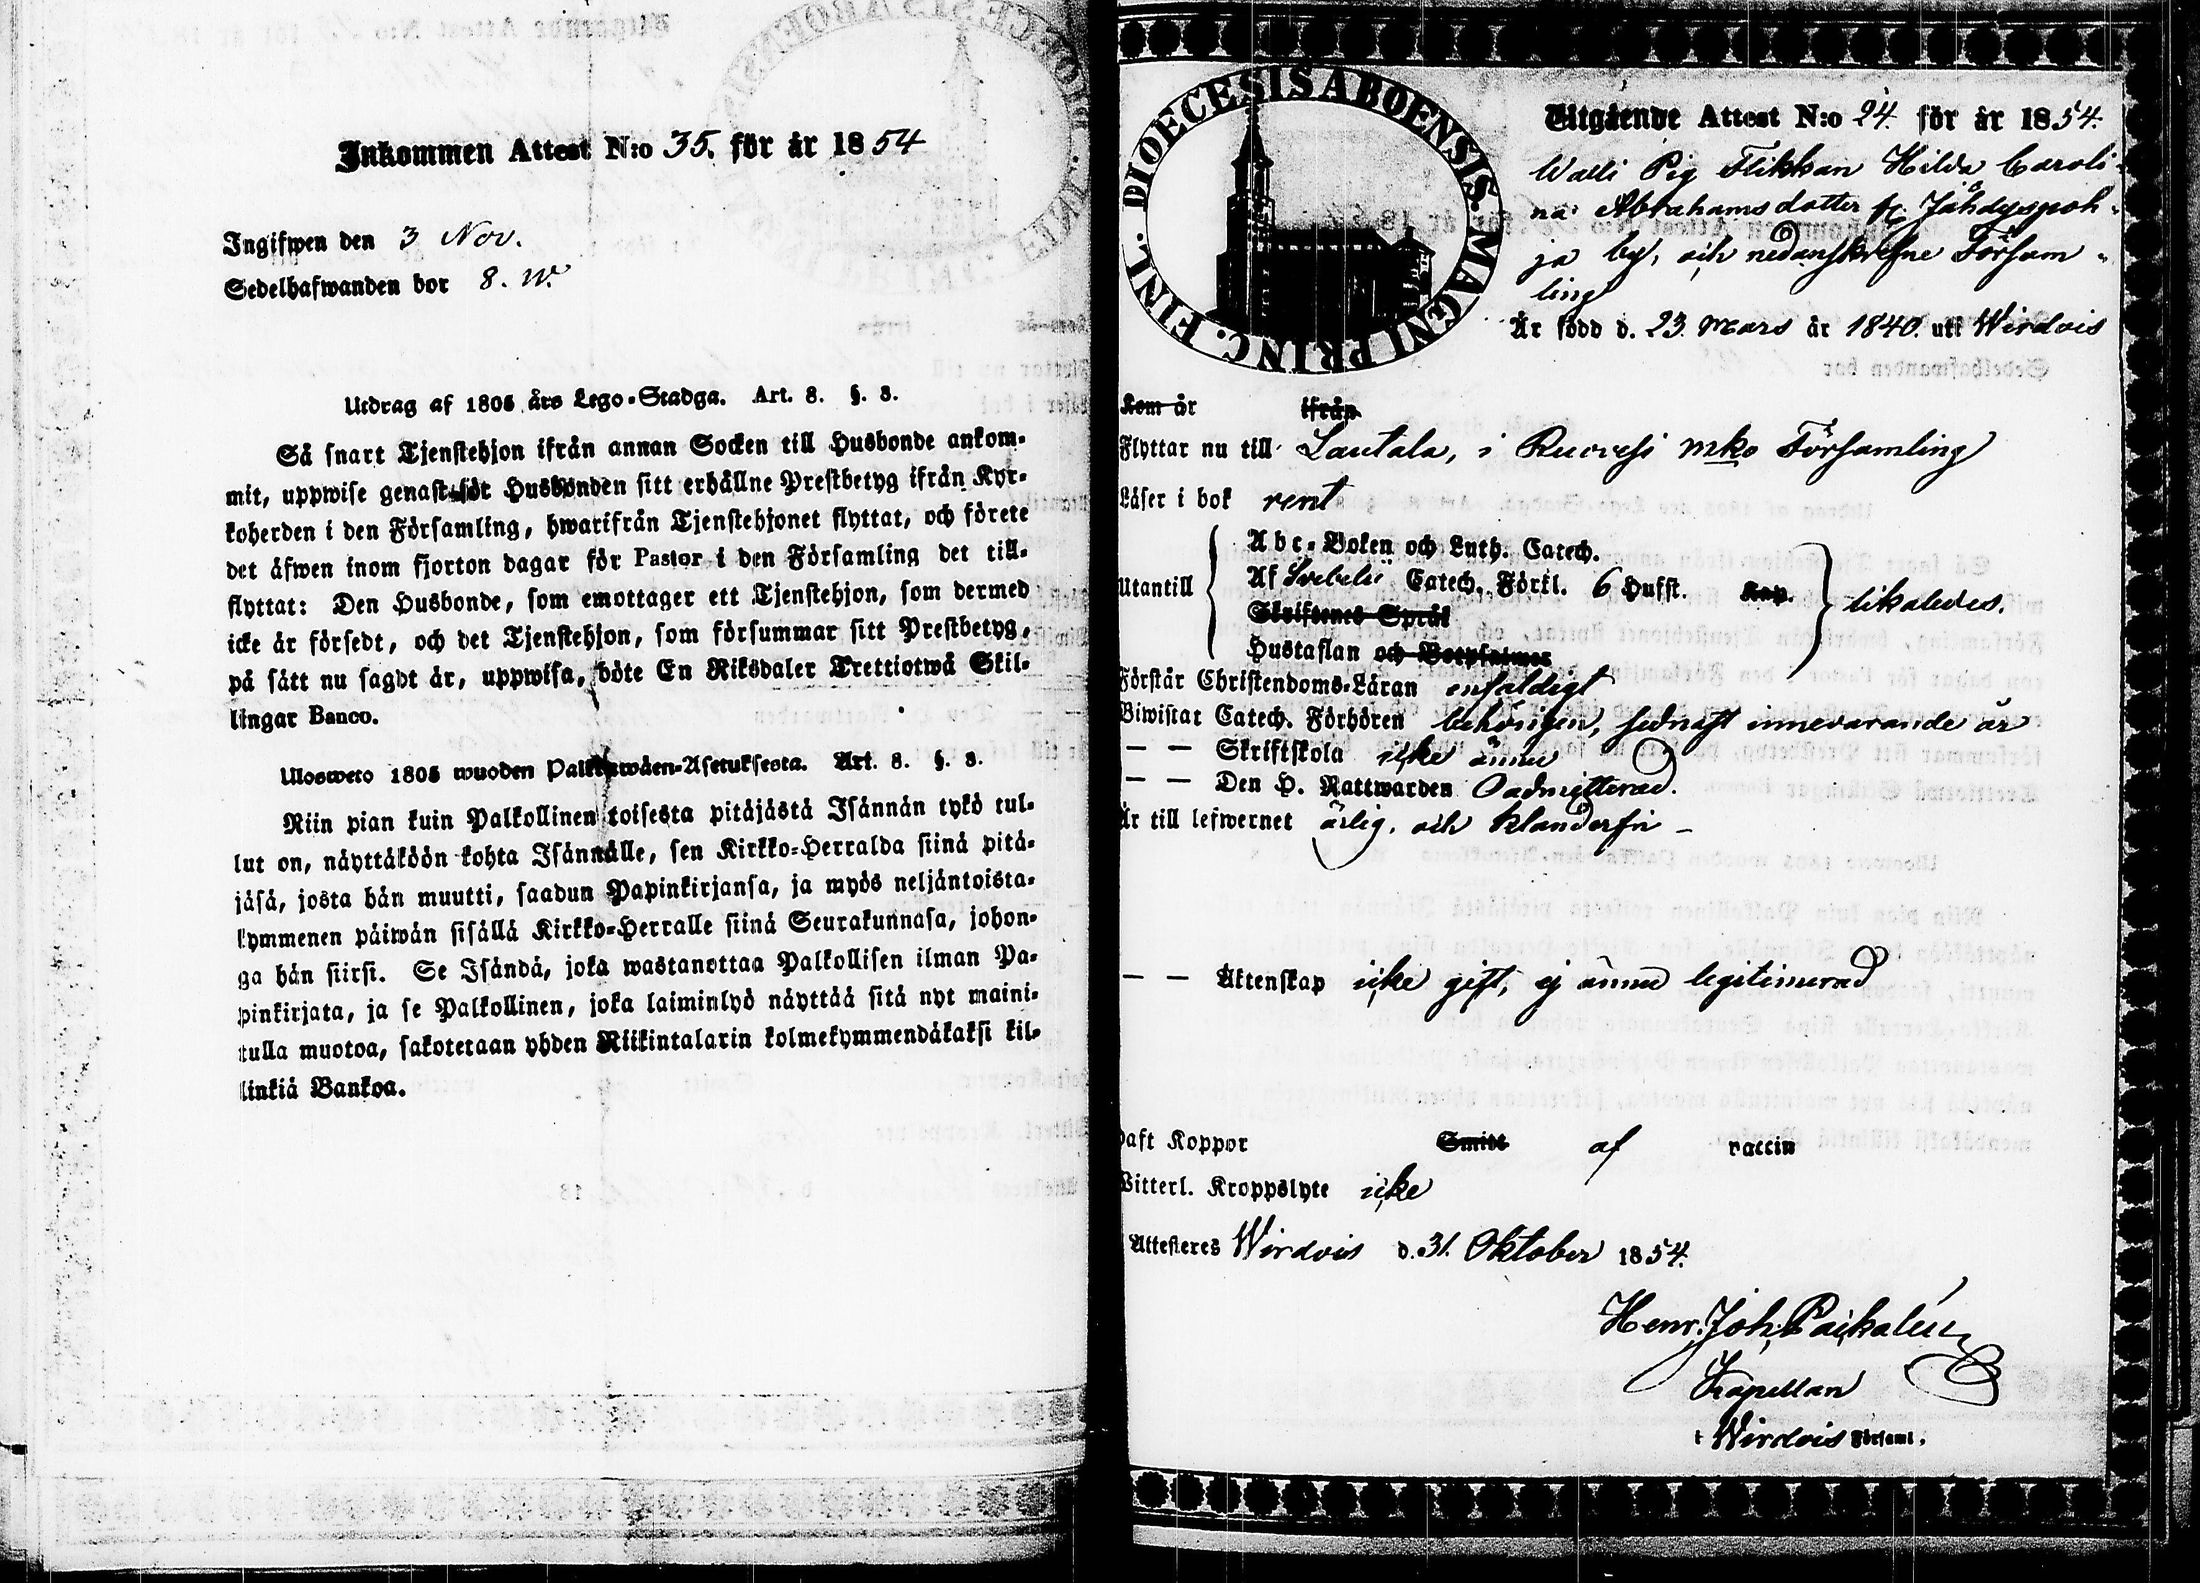 Inkommen Attest N:o 35. för år 1854
Ingifwen den 3 Nov.
Sedelhafwanden bor 8. W.
Utdrag af 1805 års Lego-Stadga. Art. 8. §. 8.
Så snart Tjenstehjon ifrån annan Socken till Husbonde ankom-
mit, uppwise genast för Husbonden sitt erhållne Prestbetyg ifrån Kyr-
koherden i den Församling, hwarifrån Tjenstehjonet flyttat, och förete
det äfwen inom fjorton dagar för Pastor i den Församling det till-
flyttat: Den Husbonde, som emottager ett Tjenstehjon, som dermed
icke är försedt, och det Tjenstehjon, som försummar sitt Prestbetyg,
på sätt nu sagdt är, uppwisa, böte En Riksdaler Trettiotwå Skil-
lingar Banco.
Ulosweto 1805 wuoden Palkkawäen-Asetuksesta. Art. 8. §. 8.
Niin pian kuin Palkollinen toisesta pitäjästä Isännän tykö tul-
lut on, näyttäköön kohta Isännälle, sen Kirkko-Herralda siinä pitä-
jäsä, josta hän muutti, saadun Papinkirjansa, ja myös neljäntoista-
kymmenen päiwän sisällä Kirkko-Herralle siinä Seurakunnasa, johon-
ga hän siirsi. Se Isändä, joka wastanottaa Palkollisen ilman Pa-
pinkirjata, ja se Palkollinen, joka laiminlyö näyttää sitä nyt maini-
tulla muotoa, sakotetaan yhden Riikintalarin kolmekymmendäkaksi kil-
linkiä Bankoa.
DIOECESIS ABOENSIS. MAGNI PRINC. FINL.
Utgående Attest N:o 24. för år 1854.
Walli Pig Flikkan Hilda Caroli-
na Abrahamsdotter fr. Jähdyspoh-
ja by, och nedanskrefne Försam-
ling
Är född d. 23 Mars år 1840. uti Wirdois
Kom år ifrån
Flyttar nu till Lautala, i Ruovesi mko Församling
Läser i bok rent
Utantill
Abc-Boken och Luth. Catech.
Af Svebelii Catech. Förkl. 6 Hufst. Kap.
likaledes.
Skriftenes Språk
Hustaflan och Botpsalmer
Förstår Christendoms-Läran enfaldigt
Biwistat Catech. Förhören behörigen, sednast innevarande år
— — Skriftskola icke ännu
— — Den H. Nattwarden Oadmitterad.
Är till lefwernet ärlig, och klanderfri –
— — Äktenskap icke gift, ej ännu legitimerad
Haft Koppor Smitt af vaccin
Witterl. Kroppslyte icke
Attesteres Wirdois d. 31. Oktober 1854.
Henr. Joh. Paikalén
Kapellan
i Wirdois Församl.